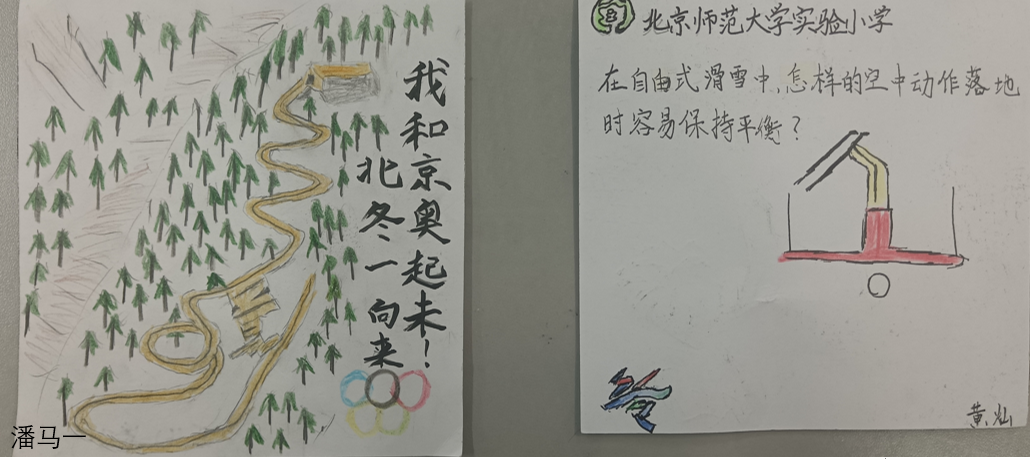 我
和
北京
冬奥
一起
向未
来！
潘马一
北京师范大学实验小学
在自由式滑雪中,怎样的空中动作落地
时容易保持平衡？
黄灿